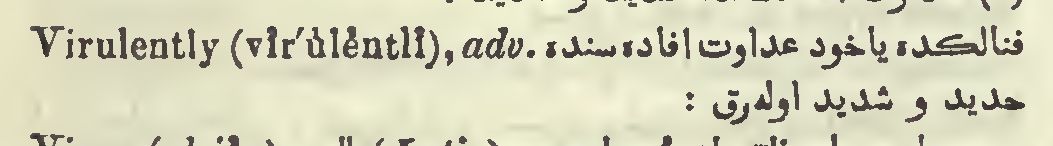 Virulently (vĭr′ŭlĕntlĭ), adv. فنالكده ياخود عداوت افاده سنده
حديد و شديد اوله رق :